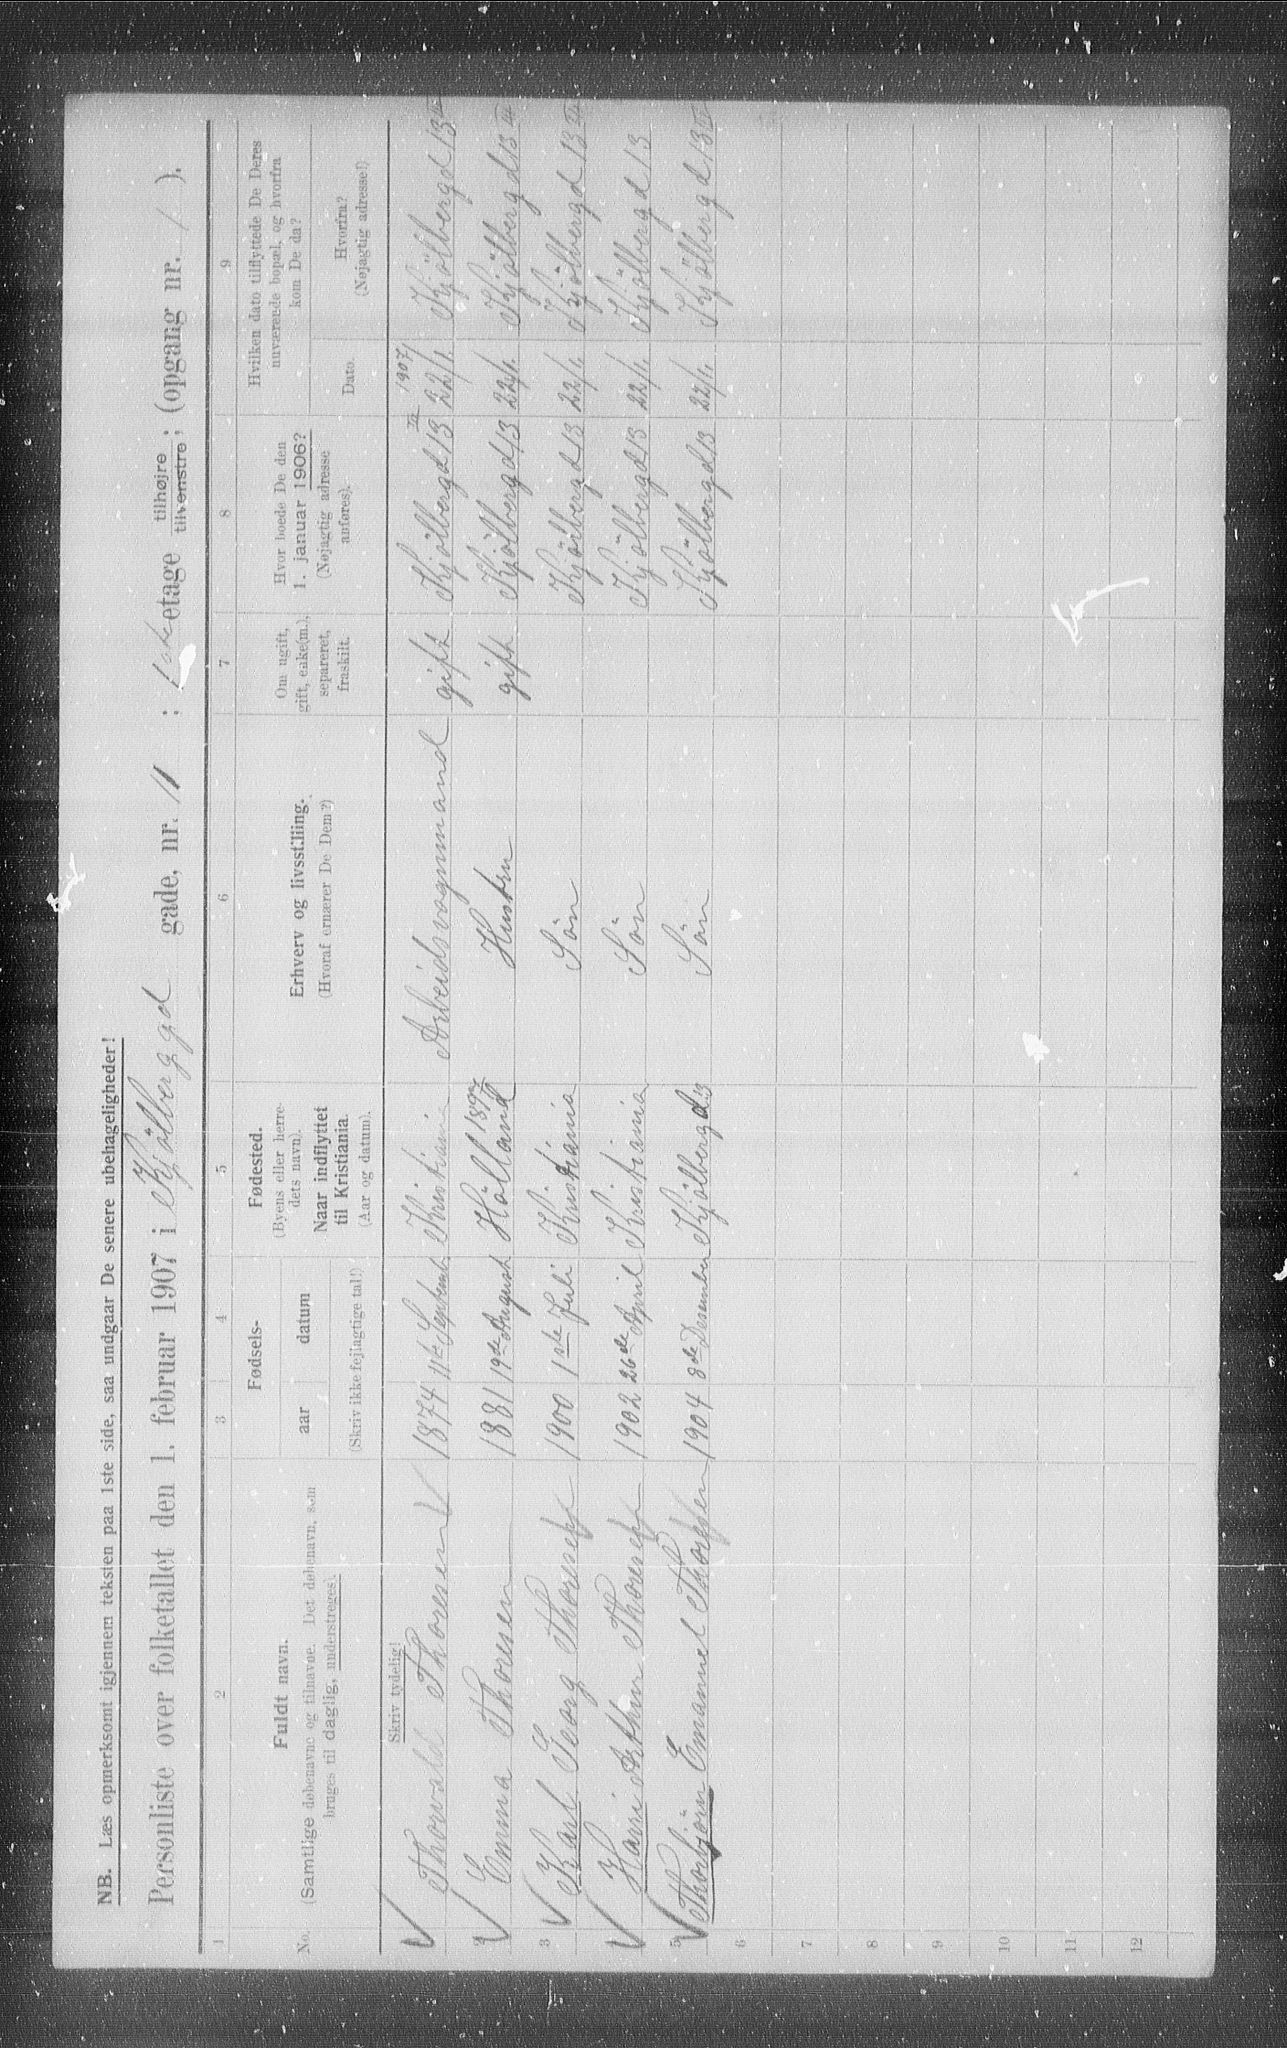 NB. Læs opmerksomt igjennem teksten paa 1ste side, saa undgaar De senere ubehageligheder!
Personliste over folketallet den 1. februar 1907 i Kjölberggd gade, nr. 11 ; 1ste etage tilhøjre tilvenstre; (opgang nr. 1 ).
1 2 3 4 5 6 7 8 9
No.
Fuldt navn.
(Samtlige døbenavne og tilnavne. Det døbenavn, som
bruges til daglig, understreges).
Fødsels-
aar datum
(Skriv ikke fejlagtige tal!)
Fødested.
(Byens eller herre-
dets navn).
Naar indflyttet
til Kristiania.
(Aar og datum).
Erhverv og livsstilling.
(Hvoraf ernærer De Dem?)
Om ugift,
gift, enke(m.),
separeret,
fraskilt.
Hvor boede De den
1. januar 1906?
(Nøjagtig adresse
anføres).
Hvilken dato tilflyttede De Deres
nuværende bopæl, og hvorfra
kom De da?
Dato.
Hvorfra?
(Nøjagtig adresse!)
Skriv tydelig!
Thorvald Thoresen 1874 11te September Kristiania Arbeidsvognmand gift Kjölberggd 13 III 1907 22/1 Kjölberggd 13 III
2 Emma Thoresen 1881 19de August Hölland 1897 Hustru gift Kjölberggd 13 22/1. Kjölberggd 13 III
3 Karl Georg Thoresen 1900 1ste Juli Kristiania Sön Kjölberggd 13 22/1. Kjölberggd 13 III
Harri Arthur Thoresen 1902 26de April Kristiania Sön Kjölberggd 13 22/1. Kjölberggd 13
5 Thorbjörn Emanuel Thoresen 1904 8de Desember Kjölberggd 13 Sön Kjölberggd 13 22/1. Kjölberggd 13 III
6
7
8
9
10
11
12